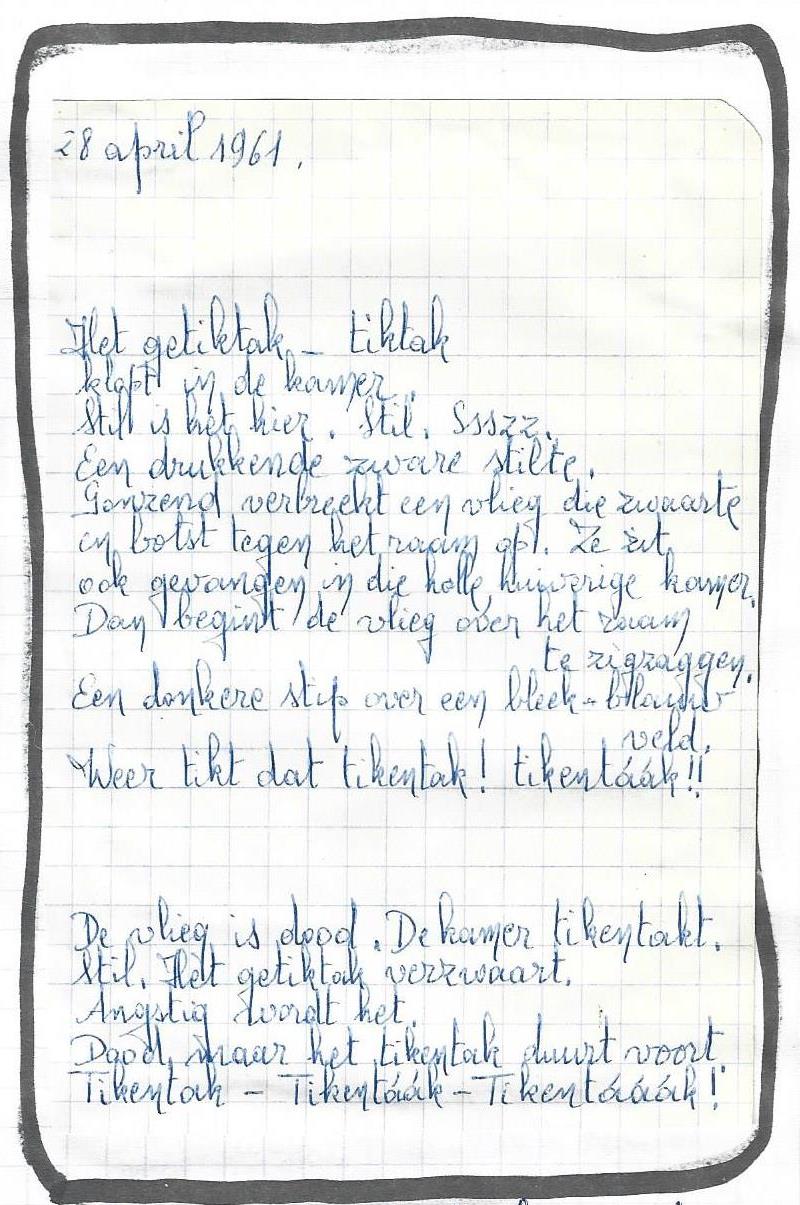 28 april 1961.
Het getiktak - tiktak
klopt in de kamer..
Stil is het hier. Stil. Ssszz.
Een drukkende zware stilte.
Gonzend verbreekt een vlieg die zwaarte
en botst tegen het raam op. Ze zit
ook gevangen in die holle huiverige kamer.
Dan begint de vlieg over het raam
te zigzaggen.
Een donkere stip over een bleek-blauw
veld.
Weer tikt dat tikentak! tikentáák!!
De vlieg is dood. De kamer tikentakt.
Stil. Het getiktak verzwaart.
Angstig wordt het.
Dood, maar het tikentak duurt voort.
Tikentak - Tikentáák - Tikentááák!